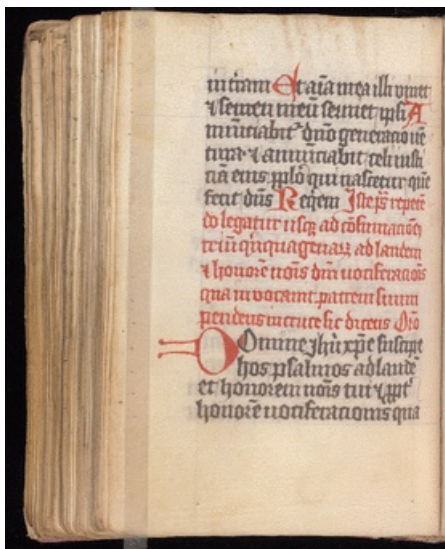 in t̃ram Et aĩa mea illi vivet
⁊ semen meũ serviet ipsi A
nnũciabit᷑ dño generacio vẽ
tura ⁊ annũciabũt celi iusti
ciã eius pplo qui nascetur quẽ
fecit dñs Reqiem Iste ps̃ repetẽ
do legatur usq ad cõsumacionẽ
triũ q̃nquagenaꝝ ad laudem
⁊ honorẽ noĩs dñi vociferacionis
qua invocavit patrem suum
pendens in cruce sic dicens Oro
Domine Jhu xp̃e suscipe
hos psalmos ad laudẽ
et honorem noĩs tui ⁊ ppt᷑
honorẽ vociferacionis qua